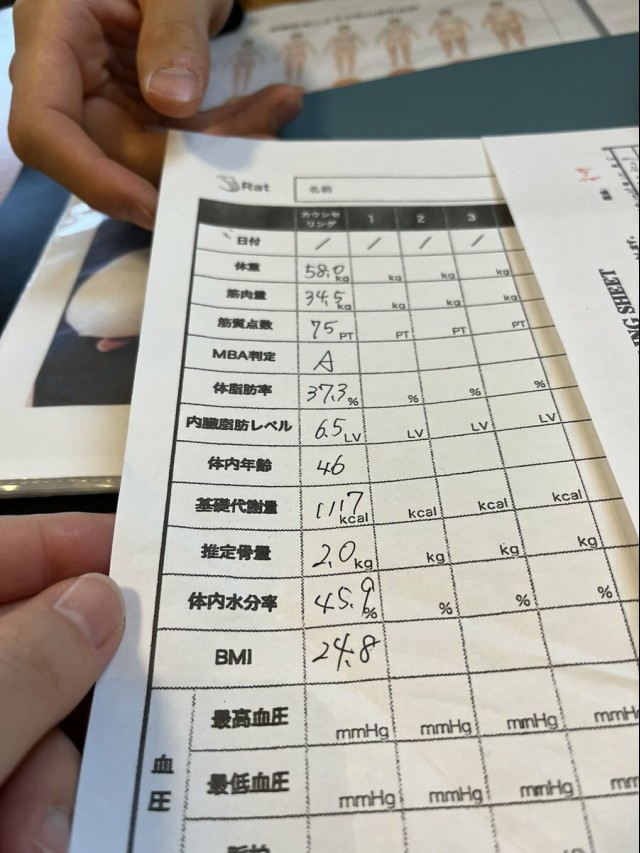 Rat
名前
カウンセリング 1 2 3
日付 / / / /
体重 58.0 kg kg kg kg
筋肉量 34.5 kg kg kg kg
筋質点数 75 PT PT PT PT
MBA判定 A
体脂肪率 37.3 % % % %
内臓脂肪レベル 6.5 LV LV LV LV
体内年齢 46
基礎代謝量 1117 kcal kcal kcal kcal
推定骨量 2.0 kg kg kg kg
体内水分率 45.9 % % % %
BMI 24.8
血圧
最高血圧 mmHg mmHg mmHg mmH
最低血圧 mmHg mmHg mmHg mm
NG SHEET